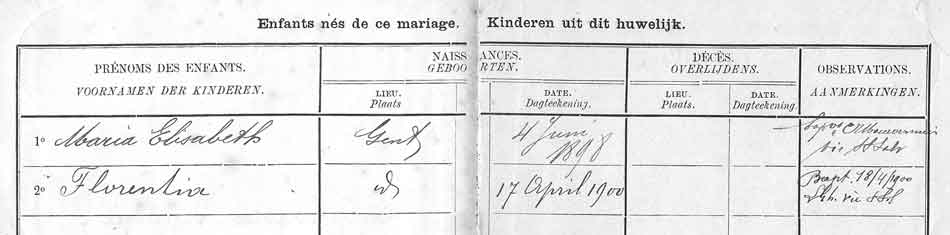 Enfants nés de ce mariage. Kinderen uit dit huwelijk.
PRÉNOMS DES ENFANTS.
VOORNAMEN DER KINDEREN.
NAISSANCES.
GEBOORTEN.
LIEU.
Plaats
DATE.
Dagteekening.
DÉCÈS.
OVERLIJDENS.
LIEU.
Plaats.
DATE.
Dagteekening.
OBSERVATIONS.
AANMERKINGEN.
1º Maria Elisabeth Gent 4 Juni
1898
2º Florentia id 17 April 1900
Bapt. 18/4/1900